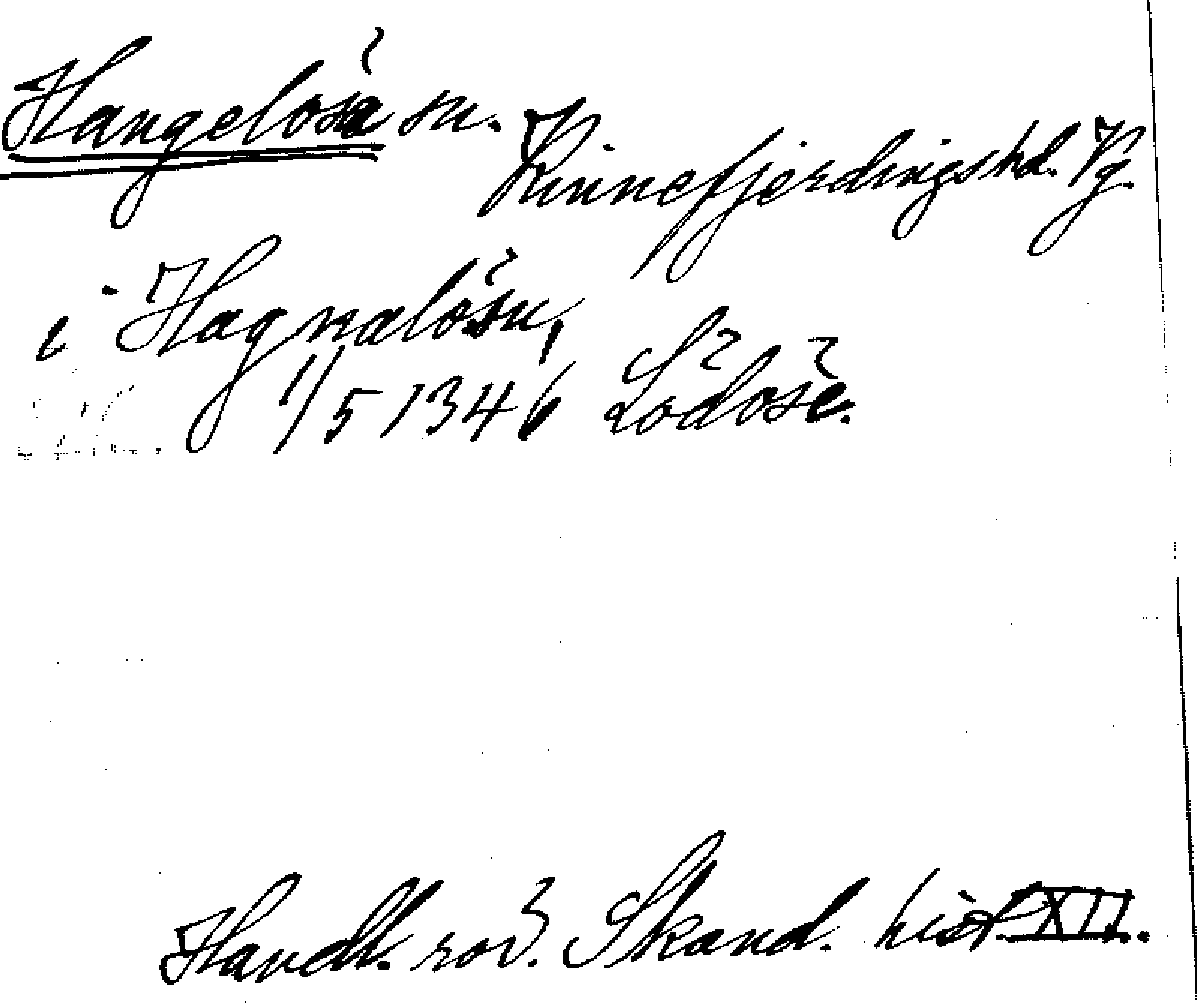 Hangelösa sn.
Kinnefjerdingshd. Vg.
i Hagnalösu,
1/5 1346 Lödöse.
Handl. rör. Skand. hist. XII.